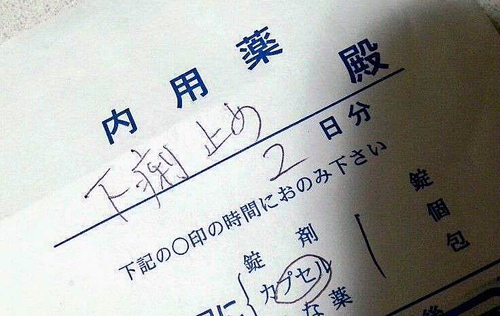 内用薬
殿
下痢止め
2日分
下記の○印の時間におのみ下さい
錠剤 錠
カプセル 個
な薬 包
に
後